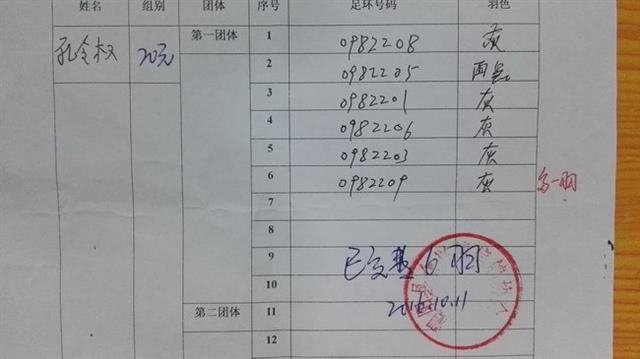 姓名 组别 团体 序号 足环号码 羽色
孔令权 20元 第一团体 1 0982208 灰
2 0982205 雨
3 0982201 灰
4 0982206 灰
5 0982203 灰
6 0982209 灰 多一羽
7
8
9 已交 6羽
10
2016.10.11
第二团体 11
12